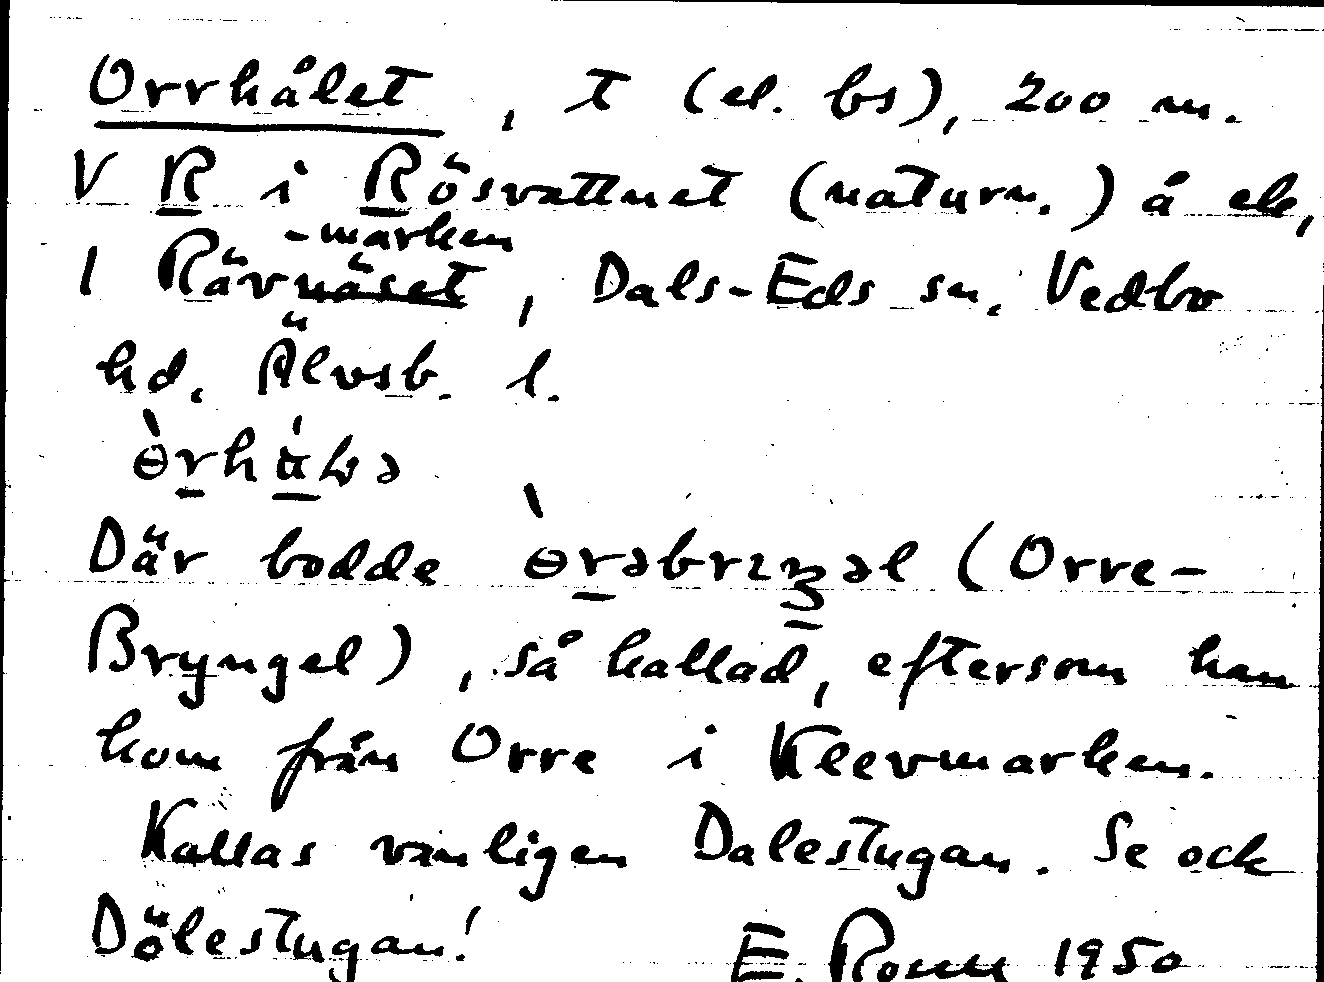 Orrhålet, t (el. bs), 200 m.
V R i Rösvattnet (naturn.) å ek,
-marken
l Rävnäset, Dals-Eds sn. Vedbo
hd. Älvsb. l.
Där bodde (Orre-
Bryngel), så kallad, eftersom han
kom från Orre i Klevmarken.
Kallas vanligen Dalestugan. Se ock
Dölestugan!
E. 1950